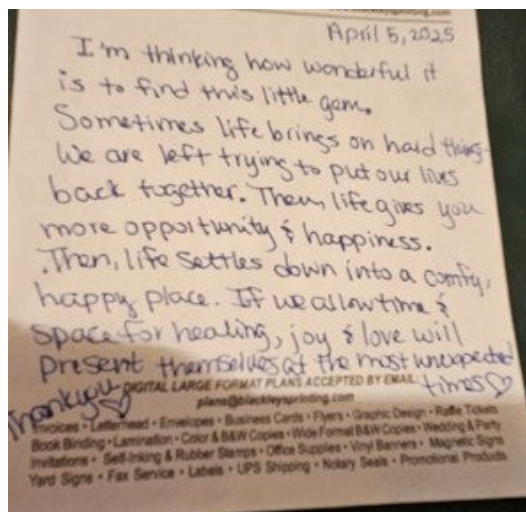 April 5, 2025
I'm thinking how wonderful it
is to find this little gem.
Sometimes life brings on hard things.
We are left trying to put our lives
back together. Then, life gives you
more opportunity & happiness.
Then, life settles down into a comfy,
happy place. If we allow time &
space for healing, joy & love will
present themselves at the most unexpected
times♡
Thank you♡
DIGITAL LARGE FORMAT PLANS ACCEPTED BY EMAIL:
plans@blackleysprinting.com
Invoices • Letterhead • Envelopes • Business Cards • Flyers • Graphic Design • Raffle Tickets
Book Binding • Lamination • Color & B&W Copies • Wide Format B&W Copies • Wedding & Party
Invitations • Self-Inking & Rubber Stamps • Office Supplies • Vinyl Banners • Magnetic Signs
Yard Signs • Fax Service • Labels • UPS Shipping • Notary Seals • Promotional Products